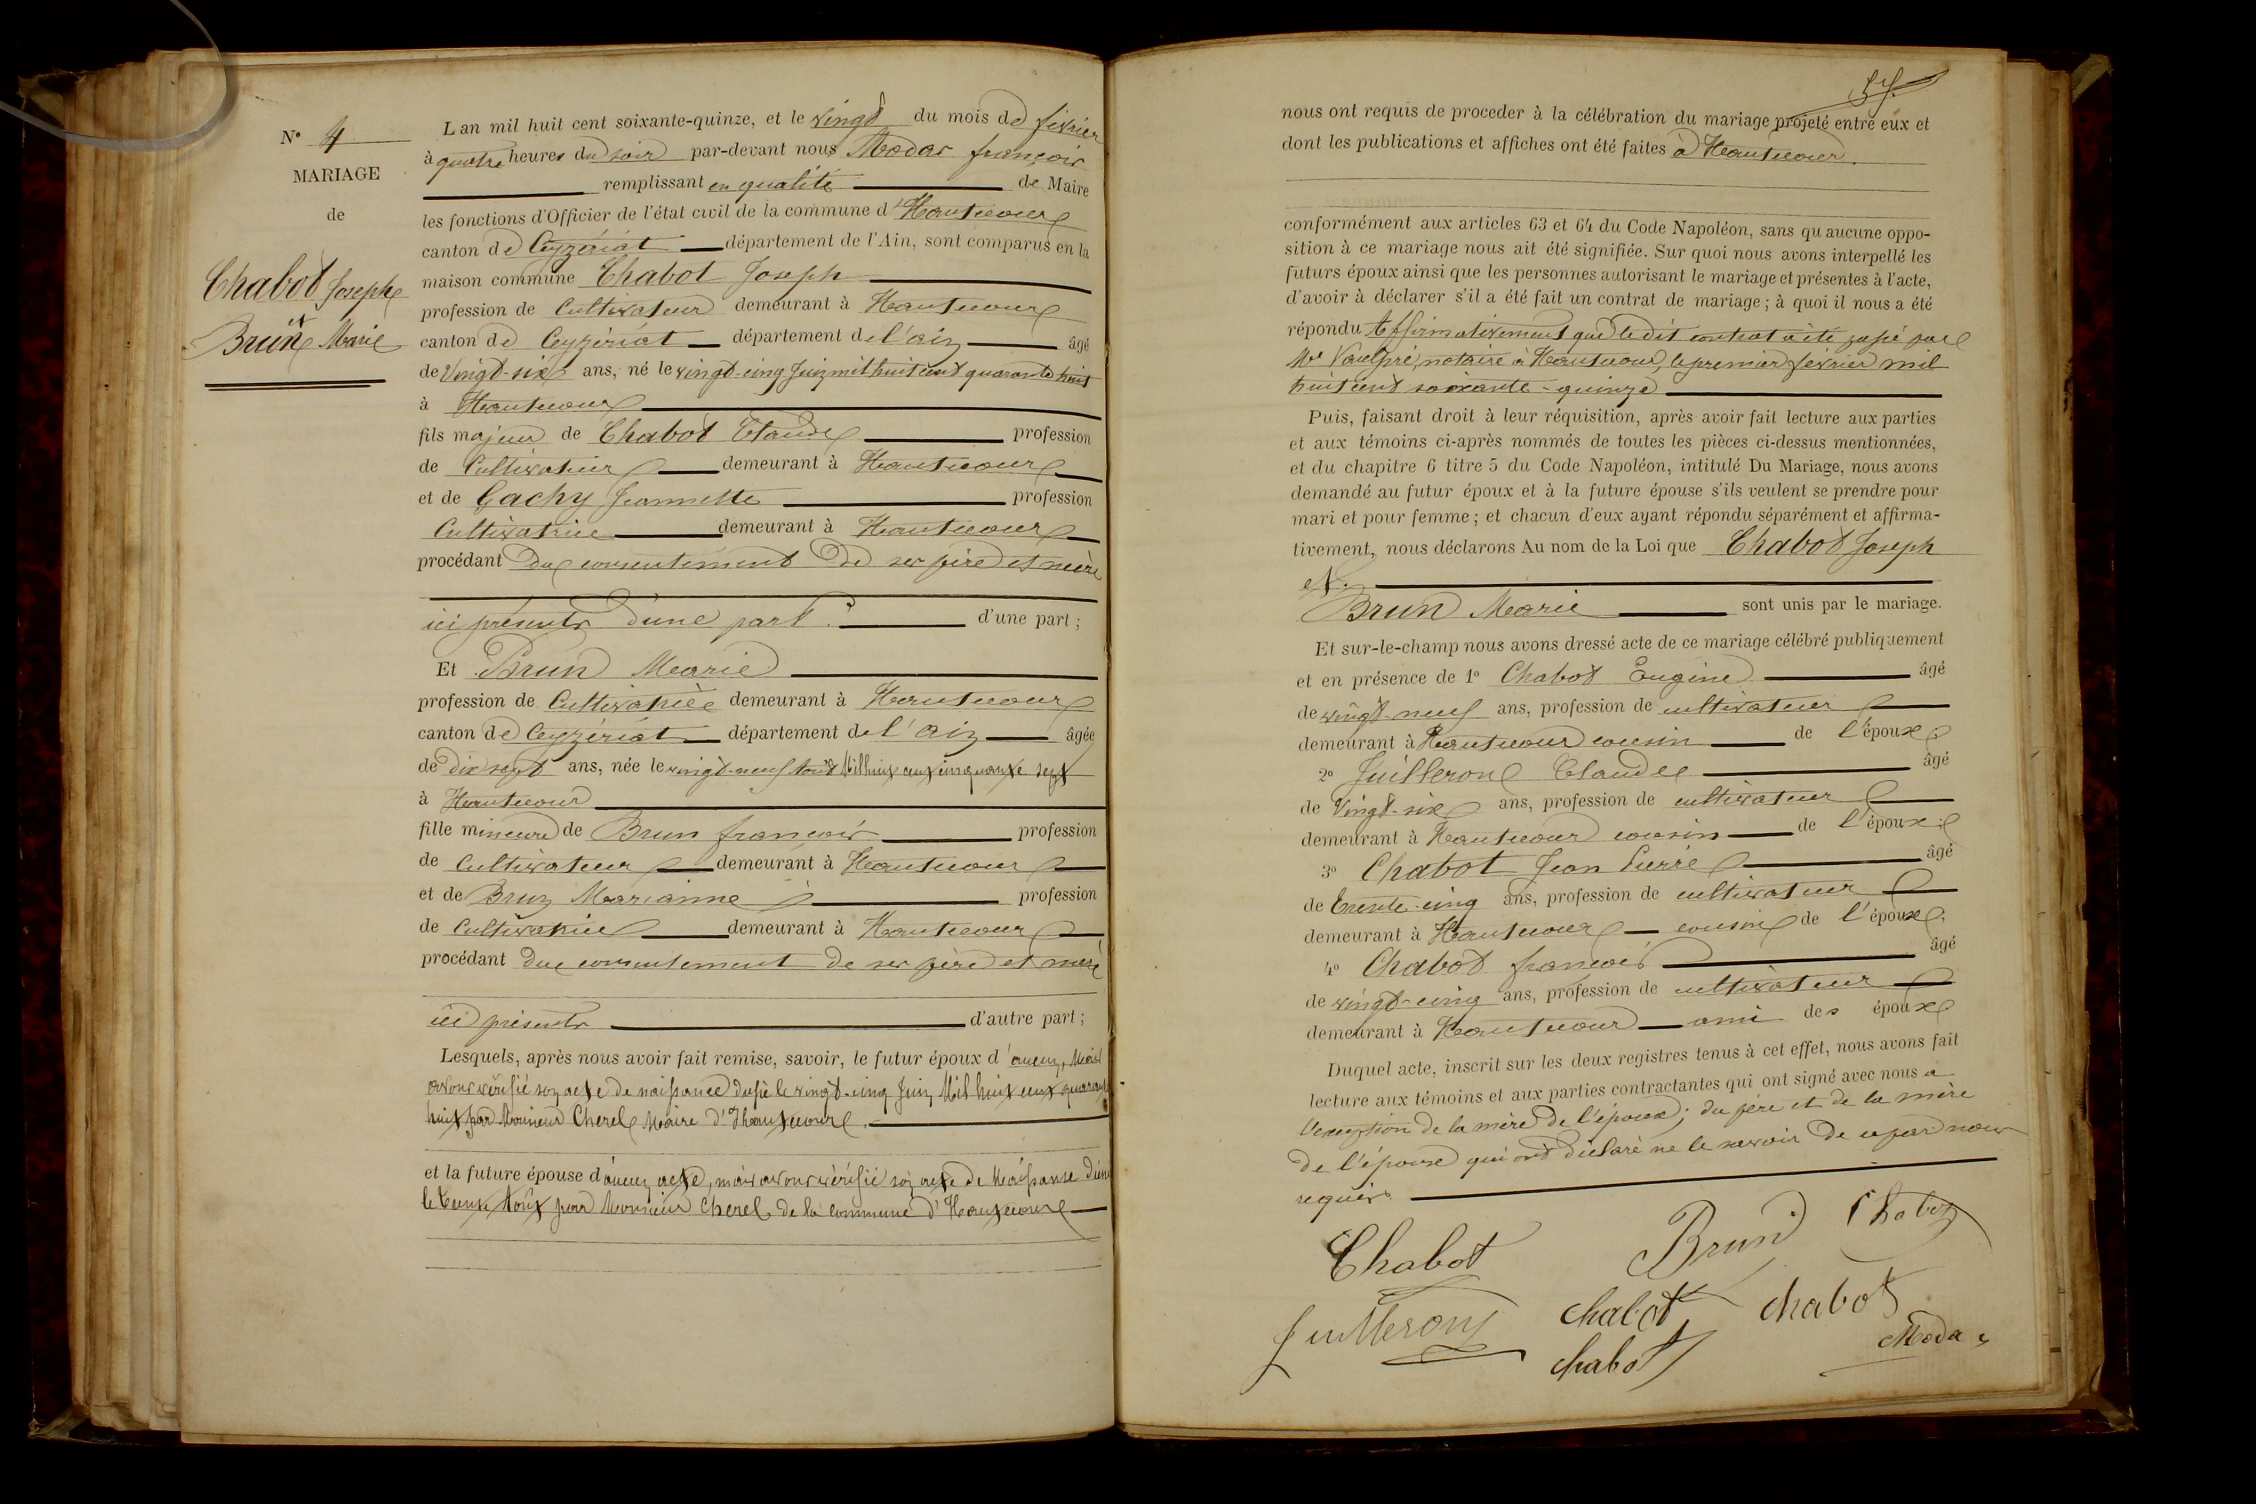 N° 4
MARIAGE
de
Chabot Joseph
et
Brun Marie
L an mil huit cent soixante-quinze, et le vingt du mois de février
à quatre heures du soir par-devant nous Modas françois
remplissant en qualité de Maire
les fonctions d'Officier de l'état civil de la commune d'Hautecour
canton de Ceyzériat département de l'Ain, sont comparus en la
maison commune Chabot Joseph
profession de Cultivateur demeurant à Hautecour
canton de Ceyzériat département de l'ain âgé
de Vingt-six ans, né le vingt-cinq Juin mil huit cent quarante huit
à Hautecour
fils majeur de Chabot Claude profession
de Cultivateur demeurant à Hautecour
et de Gachy Jeannette profession
Cultivatrice demeurant à Hautecour
procédant du consentement de ses père et mère
ici présents d'une part. d'une part ;
Et Brun Marie
profession de Cultivatrice demeurant à Hautecour
canton de Ceyzériat département de l'Ain âgée
de dix sept ans, née le vingt-neuf Août Mil huit cent cinquante sept
à Hautecour
fille mineure de Brun françois profession
de Cultivateur demeurant à Hautecour
et de Brun Marianne profession
de Cultivatrice demeurant à Hautecour
procédant du consentement de ses père et mère
ici présents d'autre part ;
Lesquels, après nous avoir fait remise, savoir, le futur époux d'aucun, Mais
avons vérifié son acte de naissance du le vingt-cinq Juin Mil huit cent quarante
huit par Monsieur Cherel Maire d'Hautecour.
et la future épouse d'aucun acte, mais avons vérifié son acte de Naissance
le trente Août par Monsieur Cherel de la commune d'Hautecour
57
nous ont requis de proceder à la célébration du mariage projeté entre eux et
dont les publications et affiches ont été faites à Hautecour.
conformément aux articles 63 et 64 du Code Napoléon, sans qu aucune oppo-
sition à ce mariage nous ait été signifiée. Sur quoi nous avons interpellé les
futurs époux ainsi que les personnes autorisant le mariage et présentes à l'acte,
d'avoir à déclarer s'il a été fait un contrat de mariage ; à quoi il nous a été
répondu Affirmativement que le dit contrat a été passé par
Me Vaulpré, notaire à Hautecour, le premier février mil
huit cent soixante-quinze
Puis, faisant droit à leur réquisition, après avoir fait lecture aux parties
et aux témoins ci-après nommés de toutes les pièces ci-dessus mentionnées,
et du chapitre 6 titre 5 du Code Napoléon, intitulé Du Mariage, nous avons
demandé au futur époux et à la future épouse s'ils veulent se prendre pour
mari et pour femme ; et chacun d'eux ayant répondu séparément et affirma-
tivement, nous déclarons Au nom de la Loi que Chabot Joseph
et
Brun Marie sont unis par le mariage.
Et sur-le-champ nous avons dressé acte de ce mariage célébré publiquement
et en présence de 1° Chabot Eugène âgé
de vingt-neuf ans, profession de cultivateur
demeurant à Hautecour cousin de l'époux
2° Juilleron Claude âgé
de Vingt-six ans, profession de cultivateur
demeurant à Hautecour cousin de l'époux
3° Chabot Jean Pierre âgé
de Trente-cinq ans, profession de cultivateur
demeurant à Hautecour cousin de l'époux,
4° Chabot françois âgé
de vingt-cinq ans, profession de cultivateur
demeurant à Hautecour ami des époux
Duquel acte, inscrit sur les deux registres tenus à cet effet, nous avons fait
lecture aux témoins et aux parties contractantes qui ont signé avec nous a
l'exception de la mère de l'époux ; du père et de la mère
de l'épouse qui ont déclaré ne le savoir de ce par nous
requis.
Chabot Brun Chabot
Juilleron chabot chabot
chabot Modas